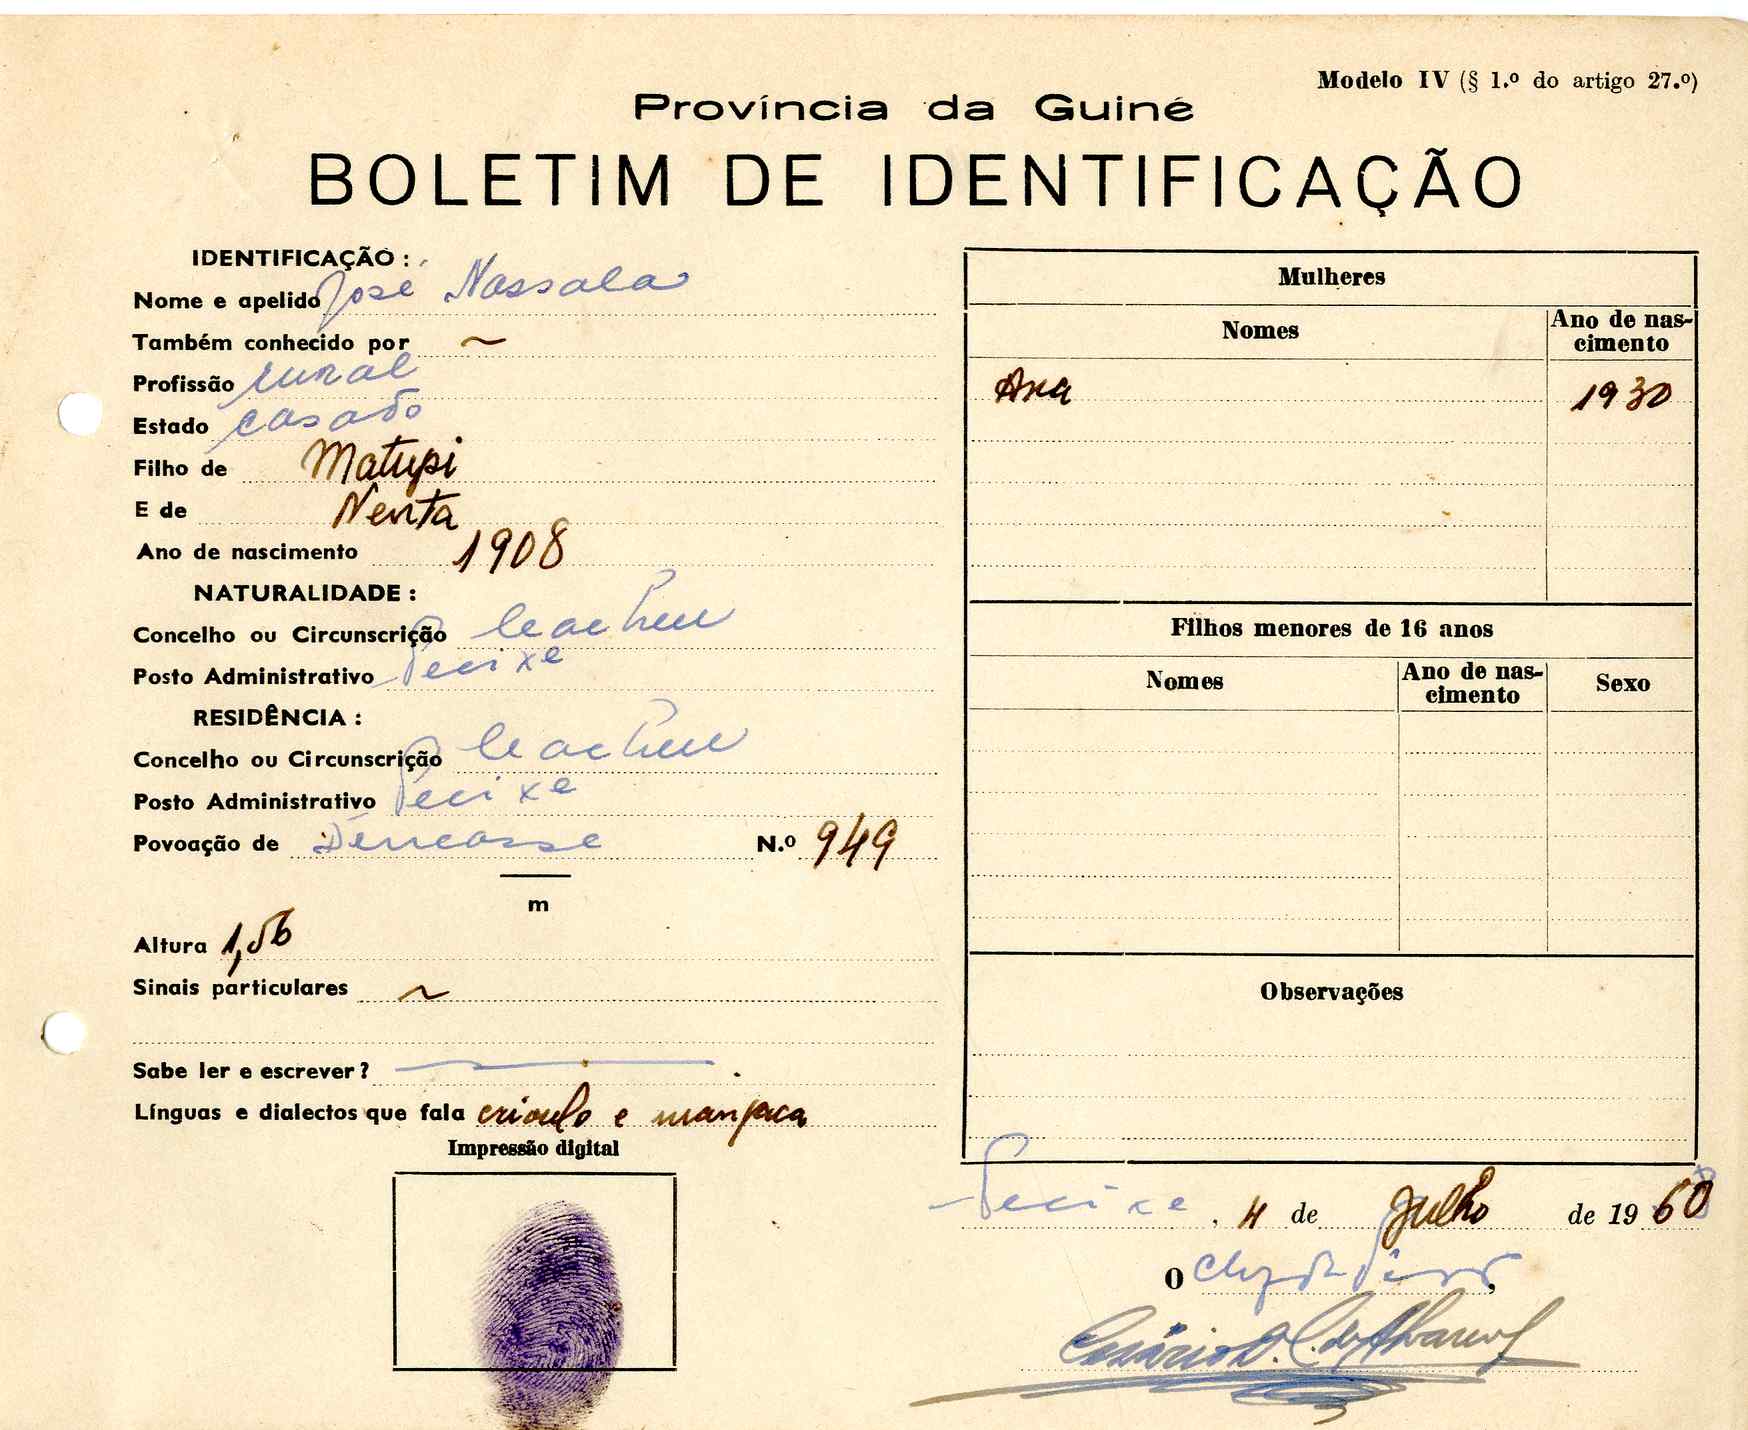 Modelo IV (§ 1.º do artigo 27.º)
Província da Guiné
BOLETIM DE IDENTIFICAÇÃO
IDENTIFICAÇÃO :
Nome e apelido José Nassala
Também conhecido por ~
Profissão rural
Estado casado
Filho de Matupi
E de Nenta
Ano de nascimento 1908
NATURALIDADE :
Concelho ou Circunscrição Cacheu
Posto Administrativo Pecixe
RESIDÊNCIA :
Concelho ou Circunscrição Cacheu
Posto Administrativo Pecixe
Povoação de N.º 949
m
Altura 1,56
Sinais particulares ~
Sabe ler e escrever ?
Línguas e dialectos que fala crioulo e manjaca
Impressão digital
Mulheres
Nomes
Ano de nas-
cimento
Ana 1930
Filhos menores de 16 anos
Nomes
Ano de nas-
cimento
Sexo
Observações
Pecixe, 4 de Julho de 1960
O